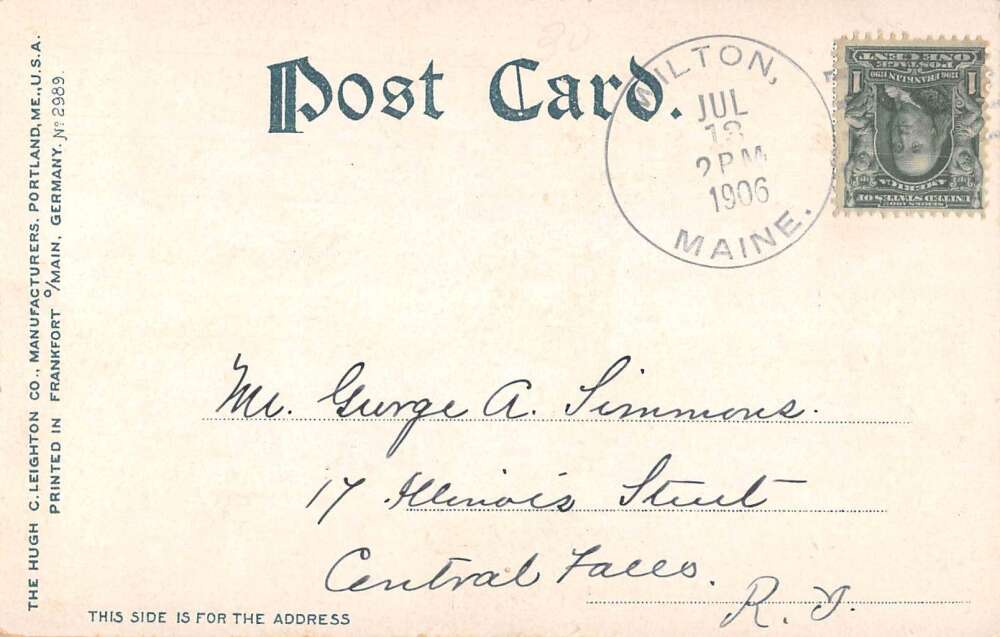 THE HUGH C. LEIGHTON CO., MANUFACTURERS. PORTLAND, ME., U.S.A.
PRINTED IN FRANKFORT O/MAIN, GERMANY. No 2989.
Post Card.
WILTON,
JUL
2 PM
1906
MAINE.
SERIES 1902
UNITED STATES OF
AMERICA
1706 FRANKLIN 1790
1 1
POSTAGE
ONE CENT
Mr. George A. Simmons.
17 Illinois Street
Central Falls.
R. I.
THIS SIDE IS FOR THE ADDRESS